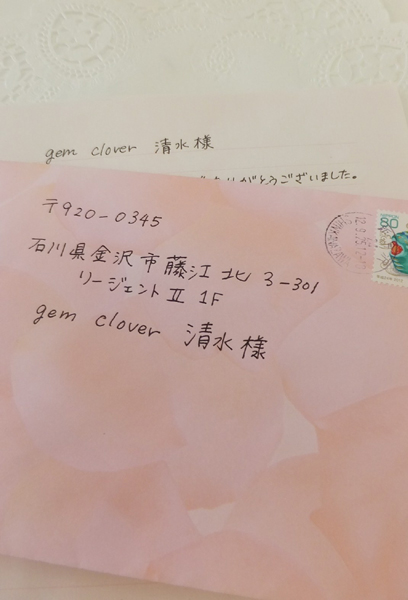 gem clover 清水様
ありがとうございました。
〒920-0345
石川県金沢市藤江北 3-301
リージェントⅡ 1F
gem clover 清水様
80